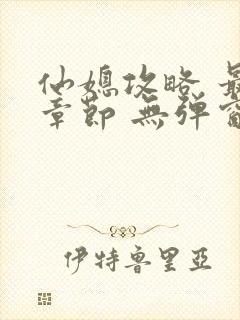 仙媳攻略 最
章節 無彈窗
伊特魯里亞